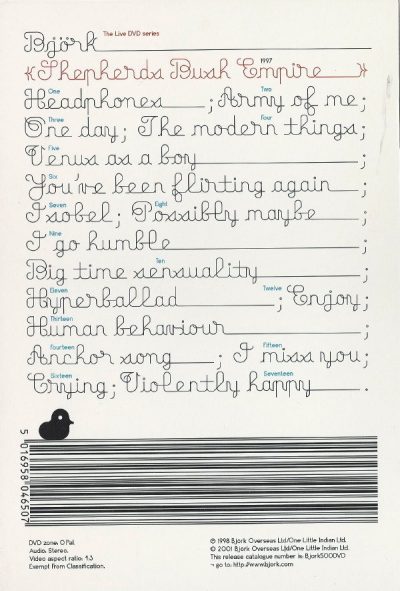 Björk The Live DVD series
{Shepherds Bush Empire 1997}
One Headphones; Two Army of me;
Three One day; Four The modern things;
Five Venus as a boy;
Six You've been flirting again;
Seven Isobel; Eight Possibly maybe;
Nine I go humble;
Ten Big time sensuality;
Eleven Hyperballad; Twelve Enjoy;
Thirteen Human behaviour;
Fourteen Anchor song; Fifteen I miss you;
Sixteen Crying; Seventeen Violently happy.
5 016958 046507
DVD zone: 0 Pal.
Audio: Stereo.
Video aspect ratio: 4:3
Exempt from Classification.
℗ 1998 Bjork Overseas Ltd/One Little Indian Ltd.
© 2001 Bjork Overseas Ltd/One Little Indian Ltd.
This release catalogue number is: Bjork500DVD
¬ go to: http://www.bjork.com